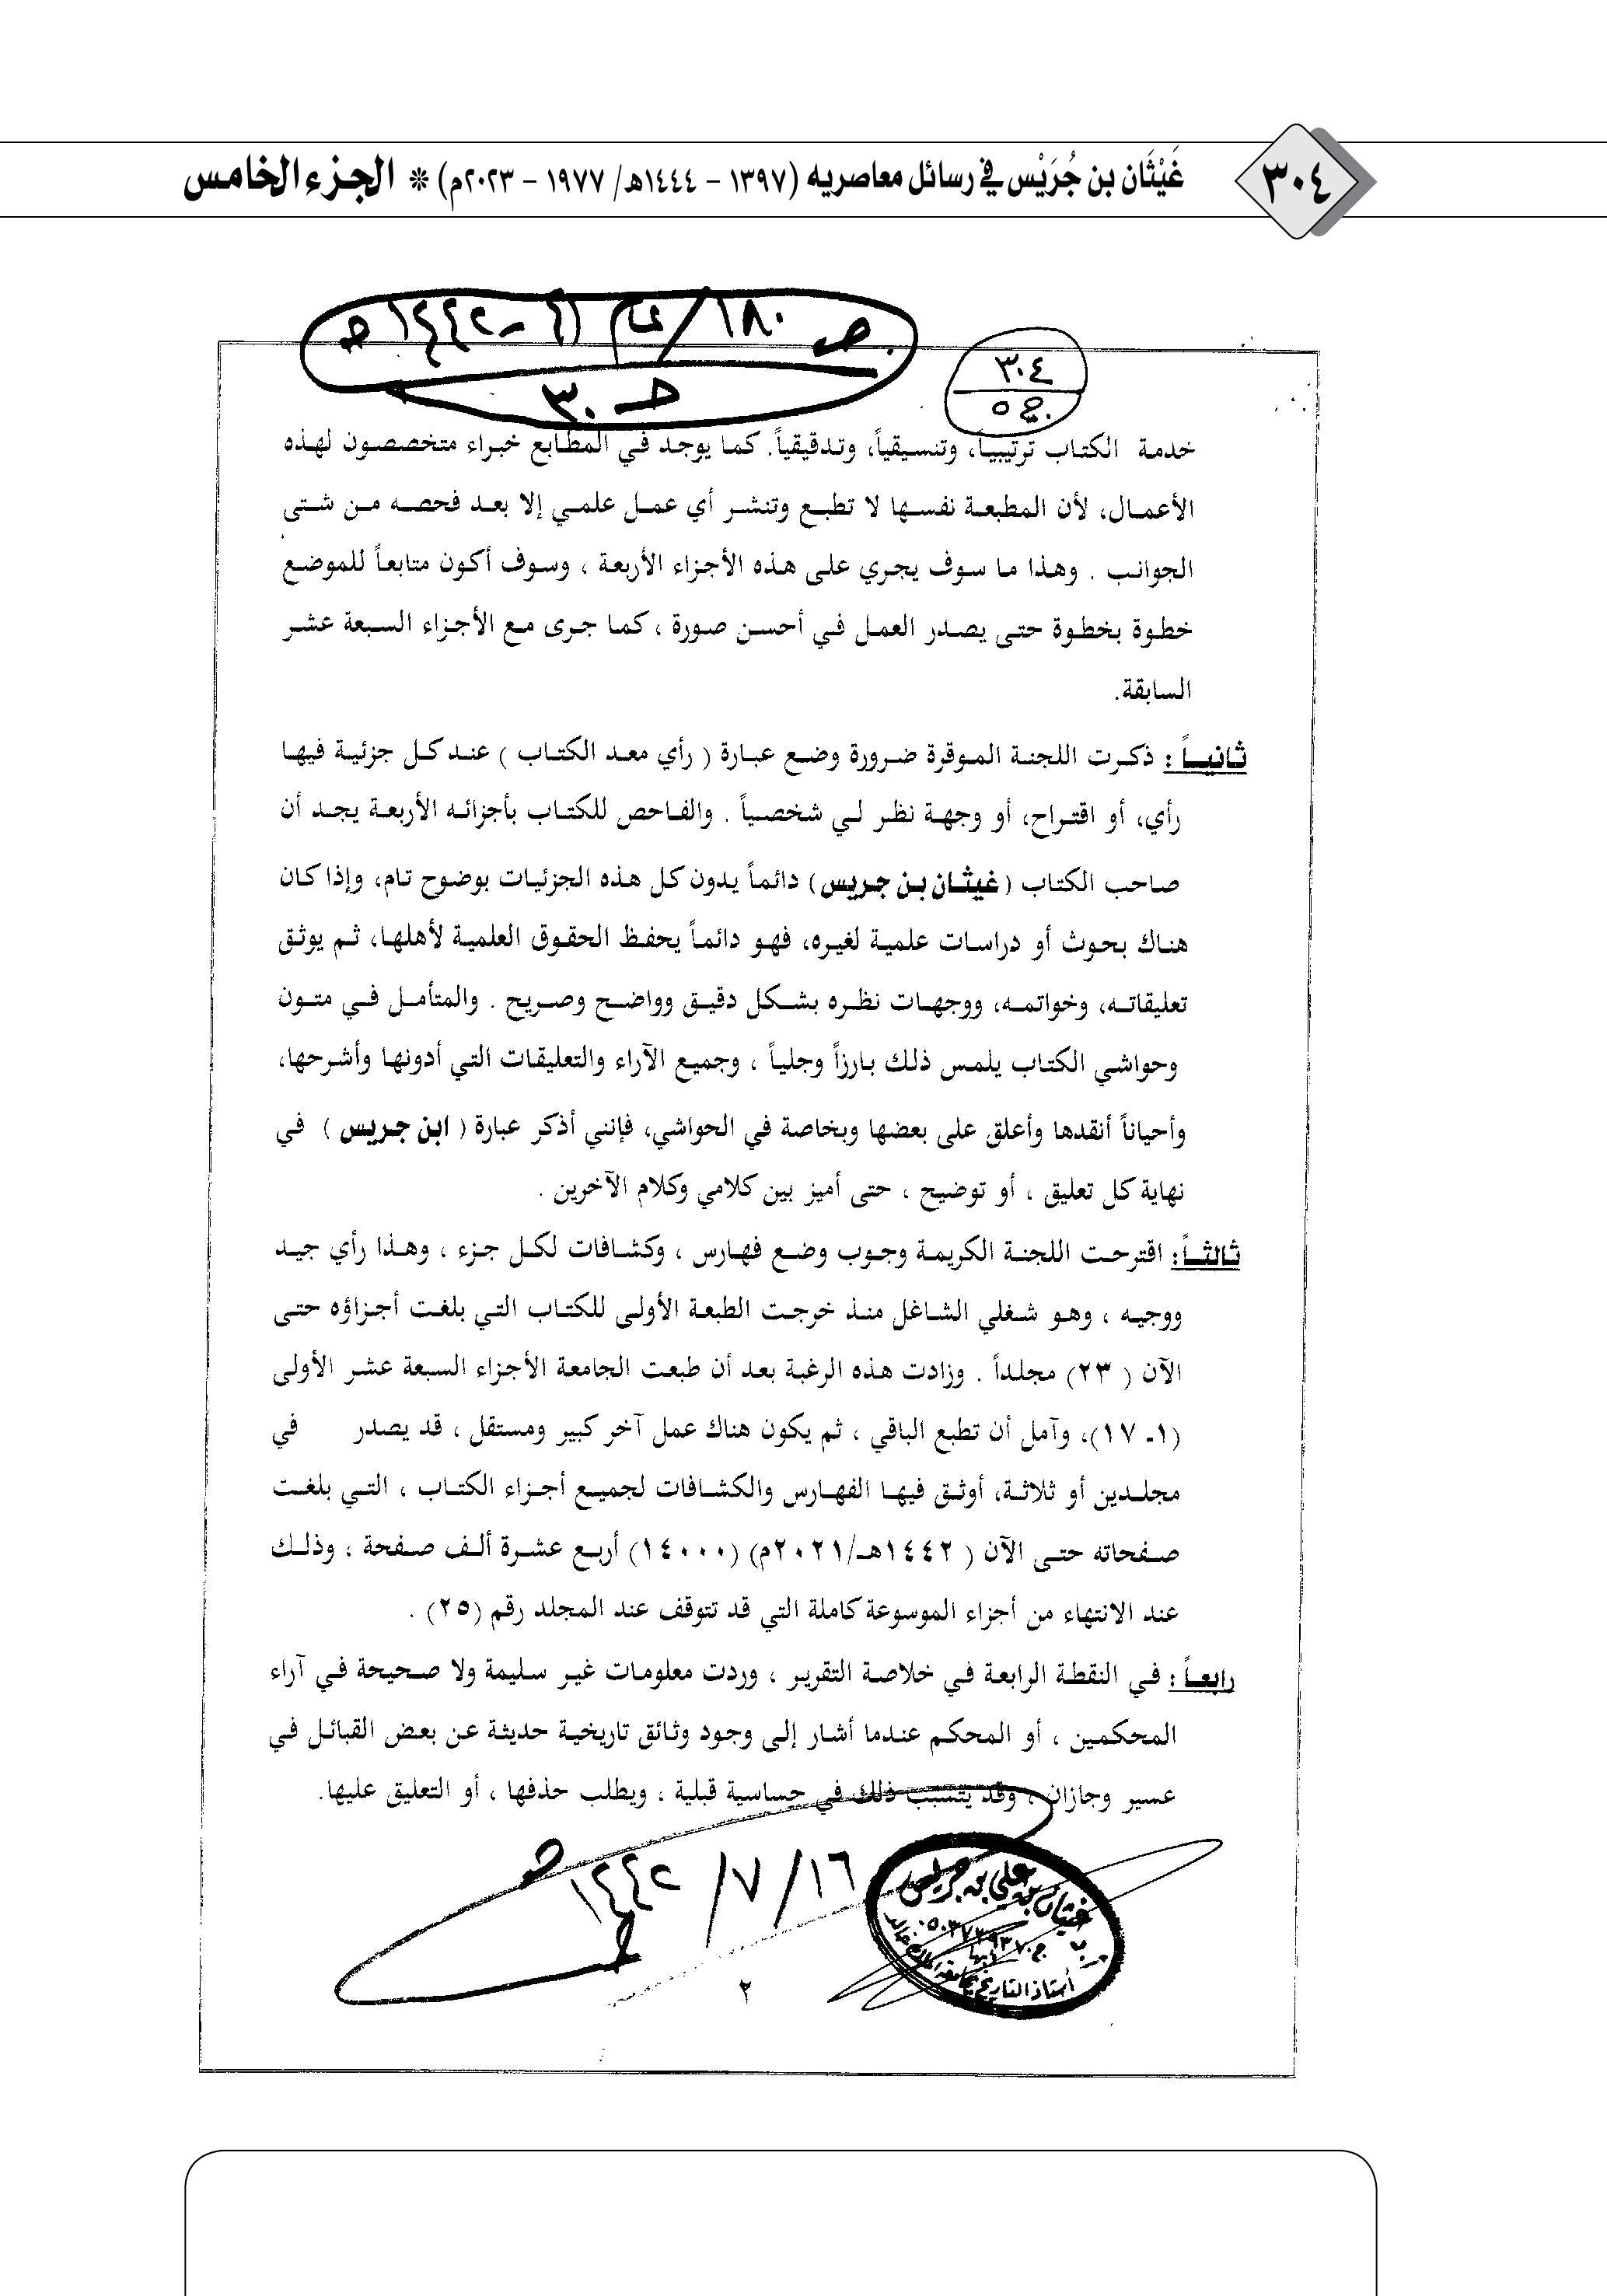 ٣٠٤
غَيْثَان بن جُرَيْس في رسائل معاصريه (١٣٩٧ - ١٤٤٤هـ/ ١٩٧٧ - ٢٠٢٣م) * الجزء الخامس
ص ١٨٠/ عام
١٤٤٢هـ
٣٠٤
ج٥
خدمة الكتاب ترتيبياً، وتنسيقياً، وتدقيقياً. كما يوجد في المطابع خبراء متخصصون لهذه
الأعمال، لأن المطبعة نفسها لا تطبع وتنشر أي عمل علمي إلا بعد فحصه من شتى
الجوانب . وهذا ما سوف يجري على هذه الأجزاء الأربعة ، وسوف أكون متابعاً للموضع
خطوة بخطوة حتى يصدر العمل في أحسن صورة ، كما جرى مع الأجزاء السبعة عشر
السابقة.
ثانياً : ذكرت اللجنة الموقرة ضرورة وضع عبارة ( رأي معد الكتاب ) عند كل جزئية فيها
رأي، أو اقتراح، أو وجهة نظر لي شخصياً . والفاحص للكتاب بأجزائه الأربعة يجد أن
صاحب الكتاب (غيثان بن جريس) دائماً يدون كل هذه الجزئيات بوضوح تام، وإذا كان
هناك بحوث أو دراسات علمية لغيره، فهو دائماً يحفظ الحقوق العلمية لأهلها، ثم يوثق
تعليقاته، وخواتمه، ووجهات نظره بشكل دقيق وواضح وصريح . والمتأمل في متون
وحواشي الكتاب يلمس ذلك بارزاً وجلياً ، وجميع الآراء والتعليقات التي أدونها وأشرحها،
وأحياناً أنقدها وأعلق على بعضها وبخاصة في الحواشي، فإنني أذكر عبارة ( ابن جريس ) في
نهاية كل تعليق ، أو توضيح ، حتى أميز بين كلامي وكلام الآخرين .
ثالثاً : اقترحت اللجنة الكريمة وجوب وضع فهارس ، وكشافات لكل جزء ، وهذا رأي جيد
ووجيه ، وهو شغلي الشاغل منذ خرجت الطبعة الأولى للكتاب التي بلغت أجزاؤه حتى
الآن ( ٢٣) مجلداً . وزادت هذه الرغبة بعد أن طبعت الجامعة الأجزاء السبعة عشر الأولى
(١ـ ١٧)، وآمل أن تطبع الباقي ، ثم يكون هناك عمل آخر كبير ومستقل ، قد يصدر في
مجلدين أو ثلاثة، أوثق فيها الفهارس والكشافات لجميع أجزاء الكتاب ، التي بلغت
صفحاته حتى الآن ( ١٤٤٢هـ/٢٠٢١م) (١٤٠٠٠) أربع عشرة ألف صفحة ، وذلك
عند الانتهاء من أجزاء الموسوعة كاملة التي قد تتوقف عند المجلد رقم (٢٥) .
رابعاً : في النقطة الرابعة في خلاصة التقرير ، وردت معلومات غير سليمة ولا صحيحة في آراء
المحكمين ، أو المحكم عندما أشار إلى وجود وثائق تاريخية حديثة عن بعض القبائل في
عسير وجازان ، وقد يتسبب ذلك في حساسية قبلية ، ويطلب حذفها ، أو التعليق عليها.
١٦/ ٧/ ١٤٤٢هـ
غيثان بن علي بن جريس
أستاذ التاريخ بجامعة الملك خالد
أبها
٢